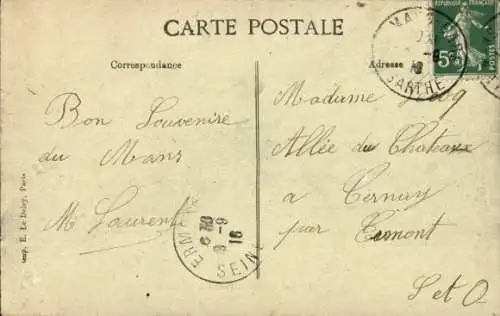 CARTE POSTALE
Correspondance
Adresse
RÉPUBLIQUE FRANÇAISE
5c
POSTES
SARTHE
Bon Souvenire
du Mans
M Laurent
Madame
Allée du Chateau
a Cernay
par Ermont
S et O
ERMONT
6 30
8 - 9
16
SEINE
Imp. E. Le Deley, Paris